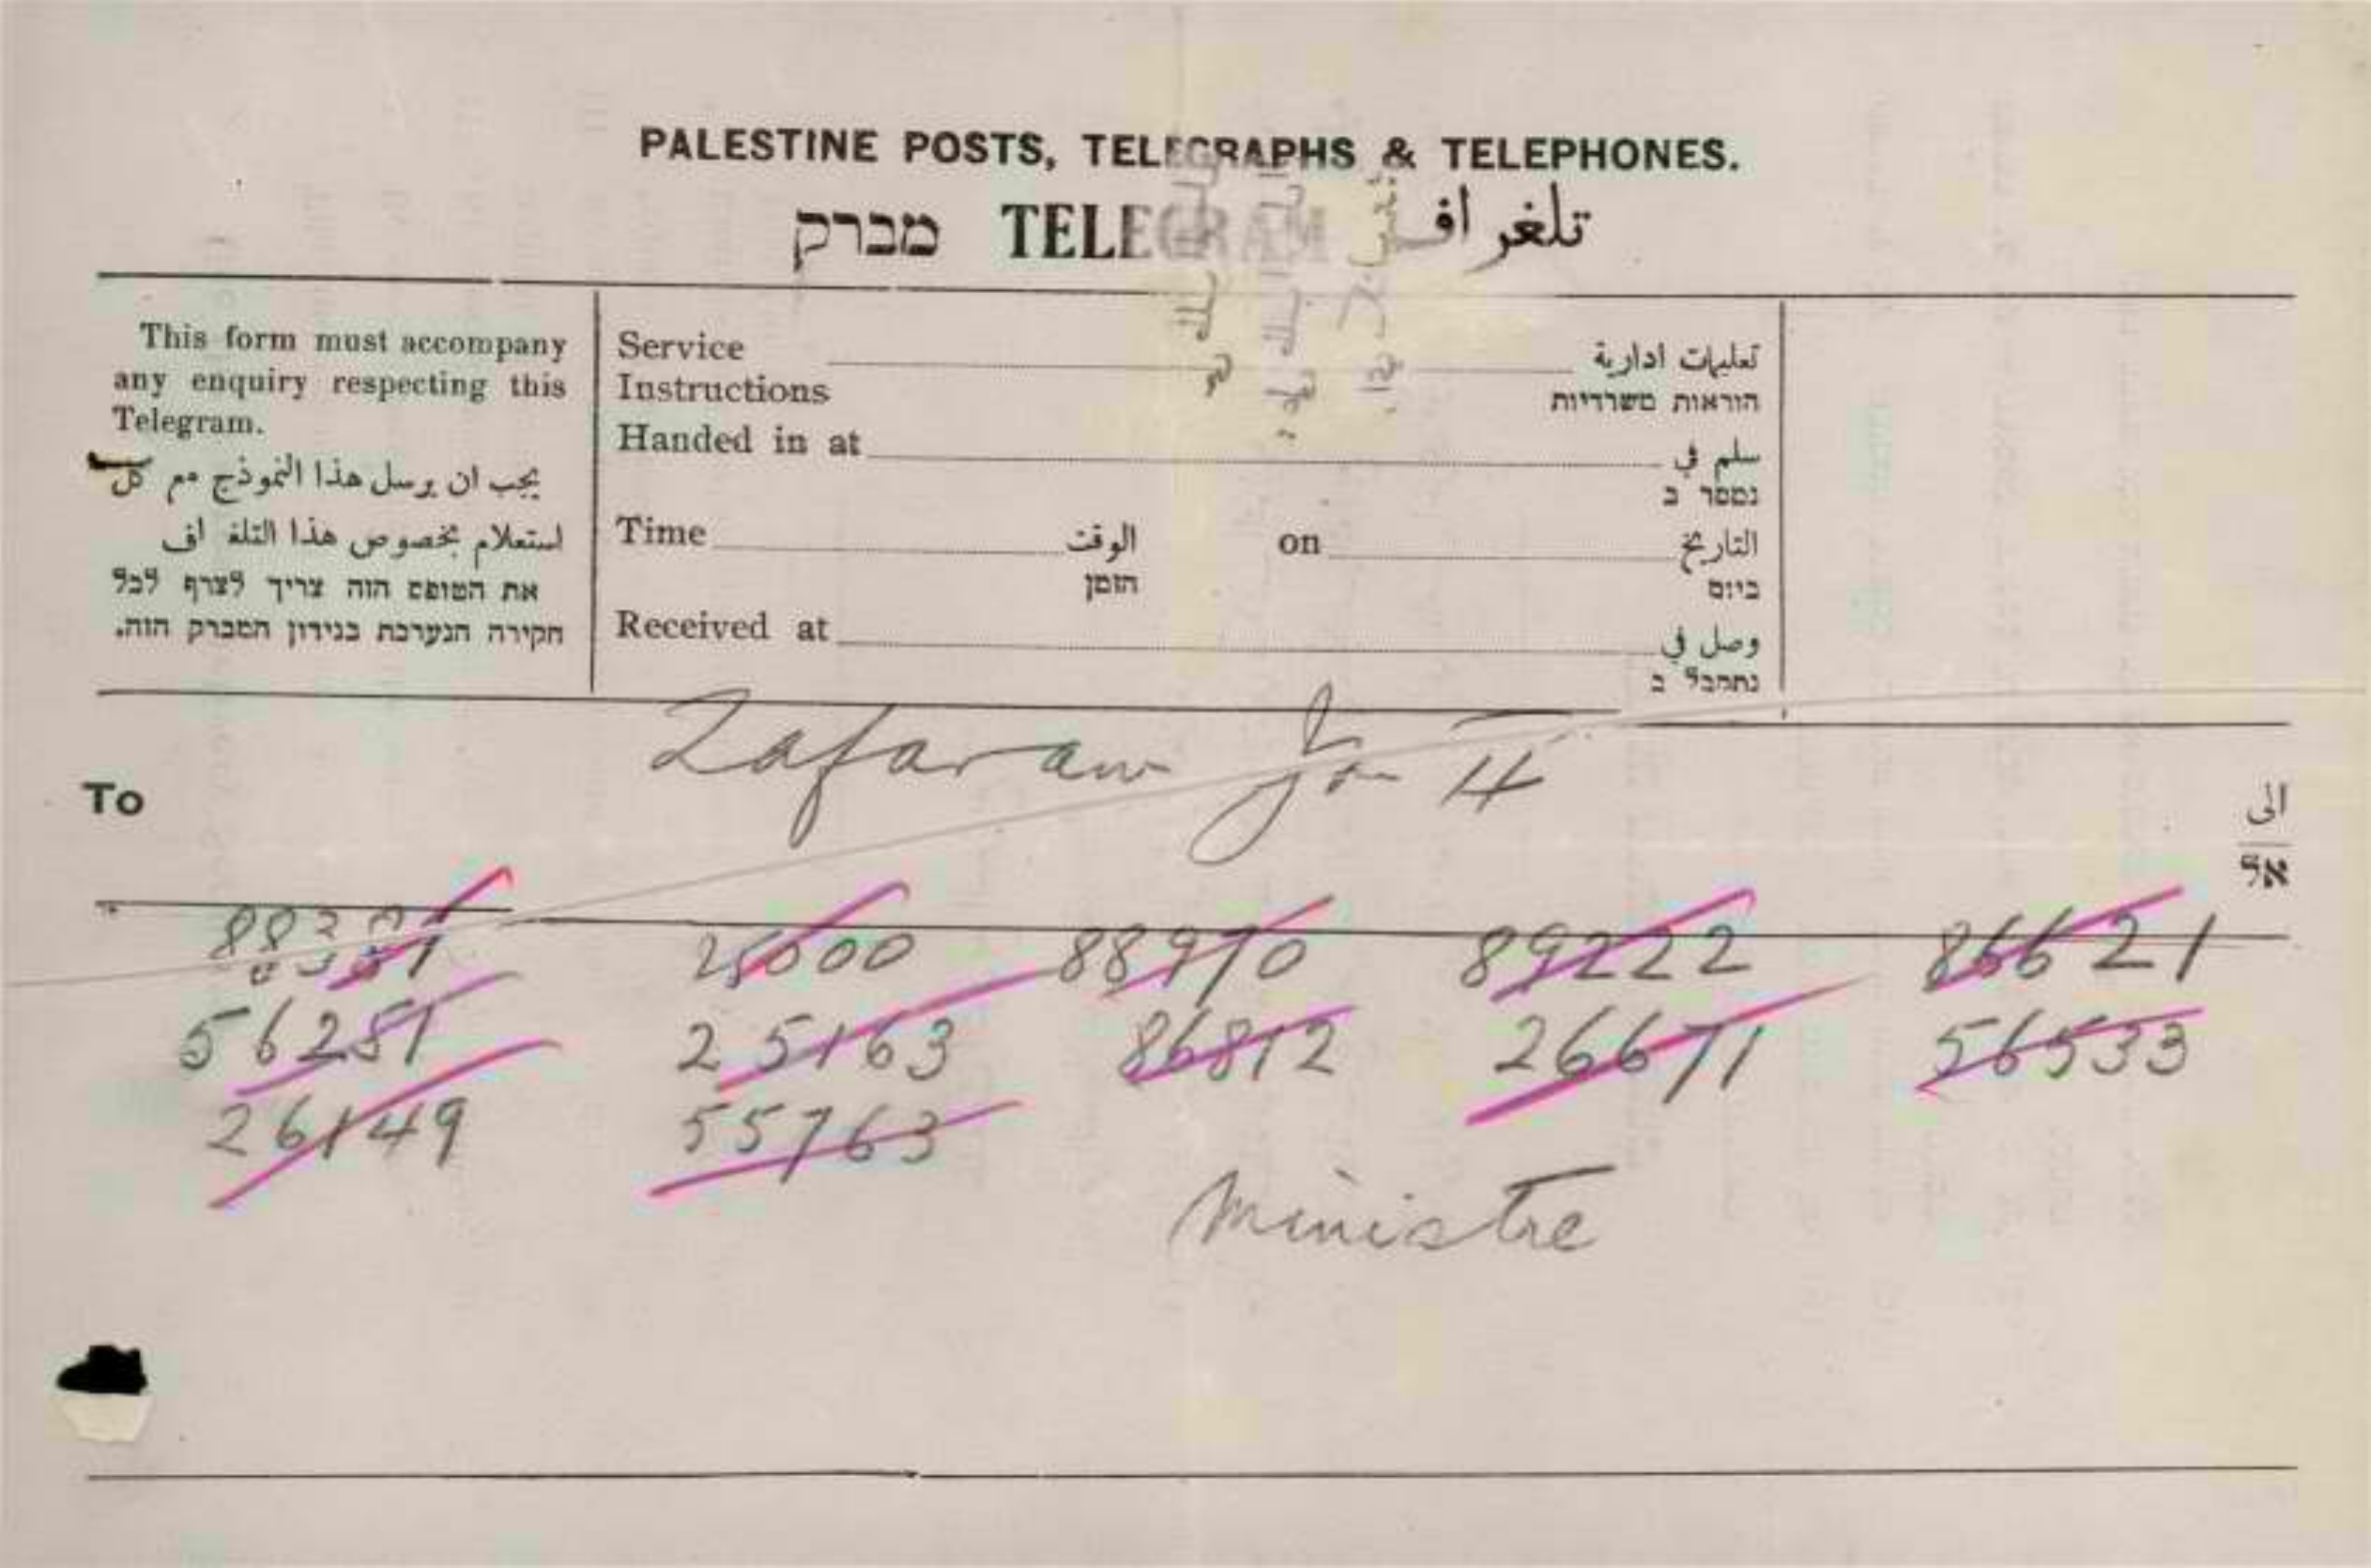 PALESTINE POSTS, TELEGRAPHS & TELEPHONES.
מברק TELEGRAM تلغراف
This form must accompany
any enquiry respecting this
Telegram.
يجب ان يرسل هذا النموذج مع كل
استعلام بخصوص هذا التلغراف
את הטופס הזה צריך לצרף לכל
חקירה הנערכת בנידון המברק הזה.
Service تعليمات ادارية
Instructions הוראות משרדיות
Handed in at سلم في
נמסר ב
Time الوقت on التاريخ
הזמן ביום
Received at وصل في
נתקבל ב
To الى
אל
25000 88970 89222 86621
56251 25163 86812 26671 56533
26149 55763
Ministre